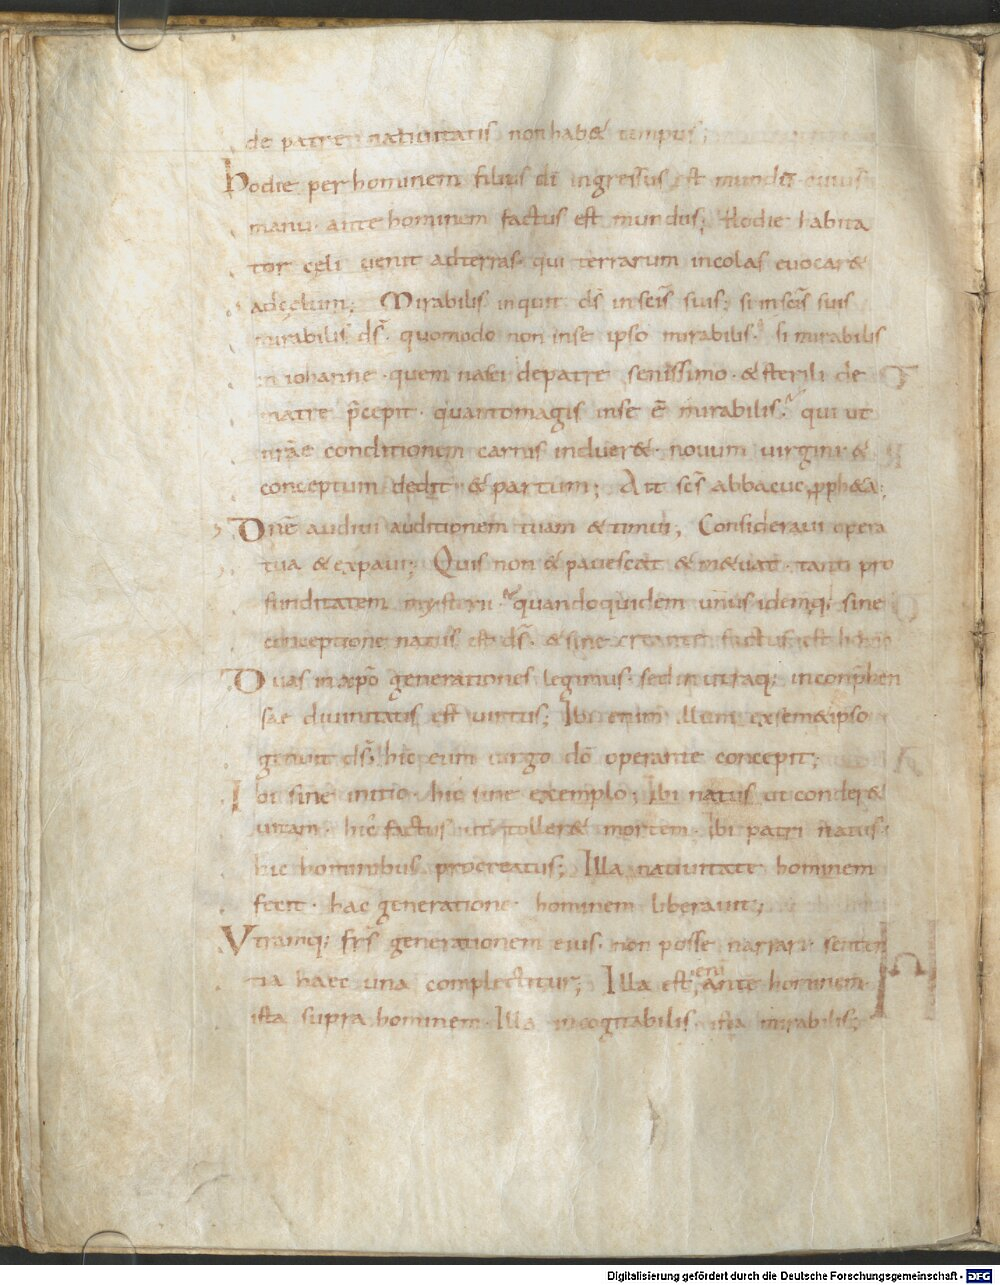 de patre nativitatis non hab& tempus;
Hodie per hominem filius dī ingressus est mundū· cuius
manu· ante hominem factus est mundus; Hodie habita
tor cęli venit ad terras· qui terrarum incolas euocar&
ad cęlum; Mirabilis inquit ds̄ in sc̄is suis; si in sc̄is suis
mirabilis ds̄· quomodo non in se ipso mirabilis· si mirabilis
in iohanne· quem nasci de patre senissimo· & sterili de
matre p̄cepit· quanto magis in se ē mirabilis· qui ut
nr̄ae conditionem carnis induer&· novum virgini &
conceptum dedit & partum; Ait sc̄s abbacuc pph&a;
Dn̄e audivi auditionem tuam & timui; Consideravi opera
tua & expavi; Quis non & pavescat & m&uat· tanti pro
funditatem mysterii· quandoquidem unus idemq; sine
conceptione natus est ds̄· & sine creante factus est homo
Duas in xp̄o generationes legimus· sed in utraq; inconp̄hen
sae divinitatis est virtus; Ibi enim illum ex sem&ipso
genuit ds̄· hic eum virgo dō operante concepit;
Ibi sine initio· hic sine exemplo; Ibi natus ut conder&
vitam· hic factus ut toller& mortem· Ibi patri natus·
hic hominibus procreatus; Illa nativitate hominem
fecit· hac generatione· hominem liberavit;
Utramq; frs̄ generationem eius· non posse narrari senten
tia haec una complectitur; Illa est eni ante hominem·
ista supra hominem· Illa incogitabilis· ista mirabilis;
Digitalisierung gefördert durch die Deutsche Forschungsgemeinschaft - DFG